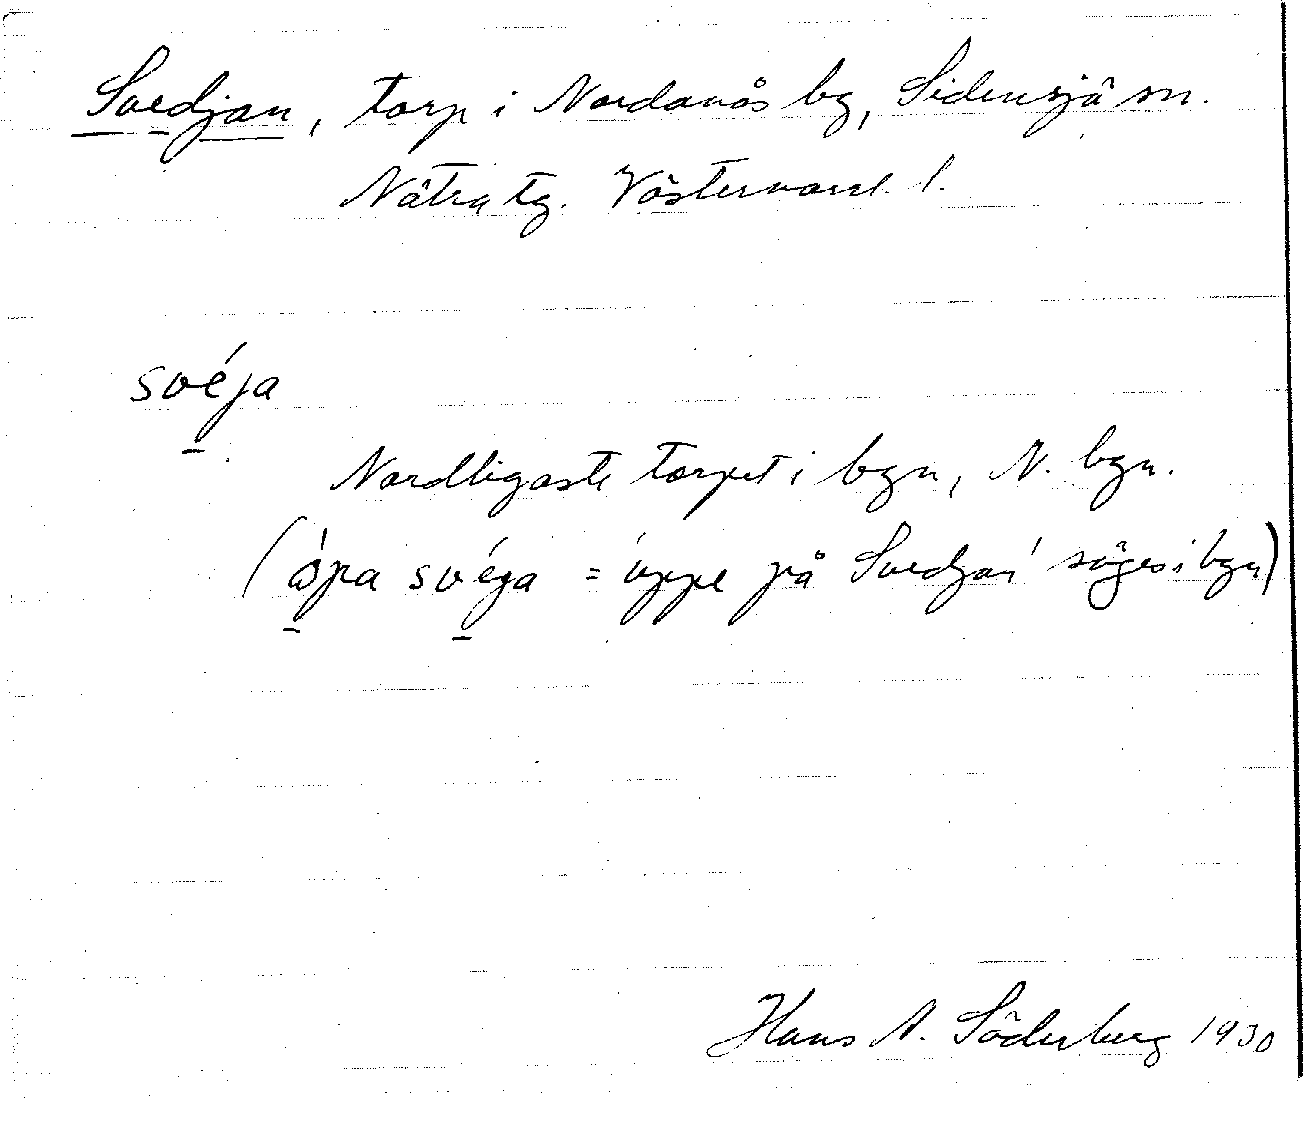 Svedjan, torp i Nordanås bg, Sidensjö sn.
Nätra tg. Västernorrl. l.
svéja
Nordligaste torpet i bgn, N. bgn.
(ópa svéga = 'uppe på Svedjan' säges i bgn)
Hans A. Söderberg 1930